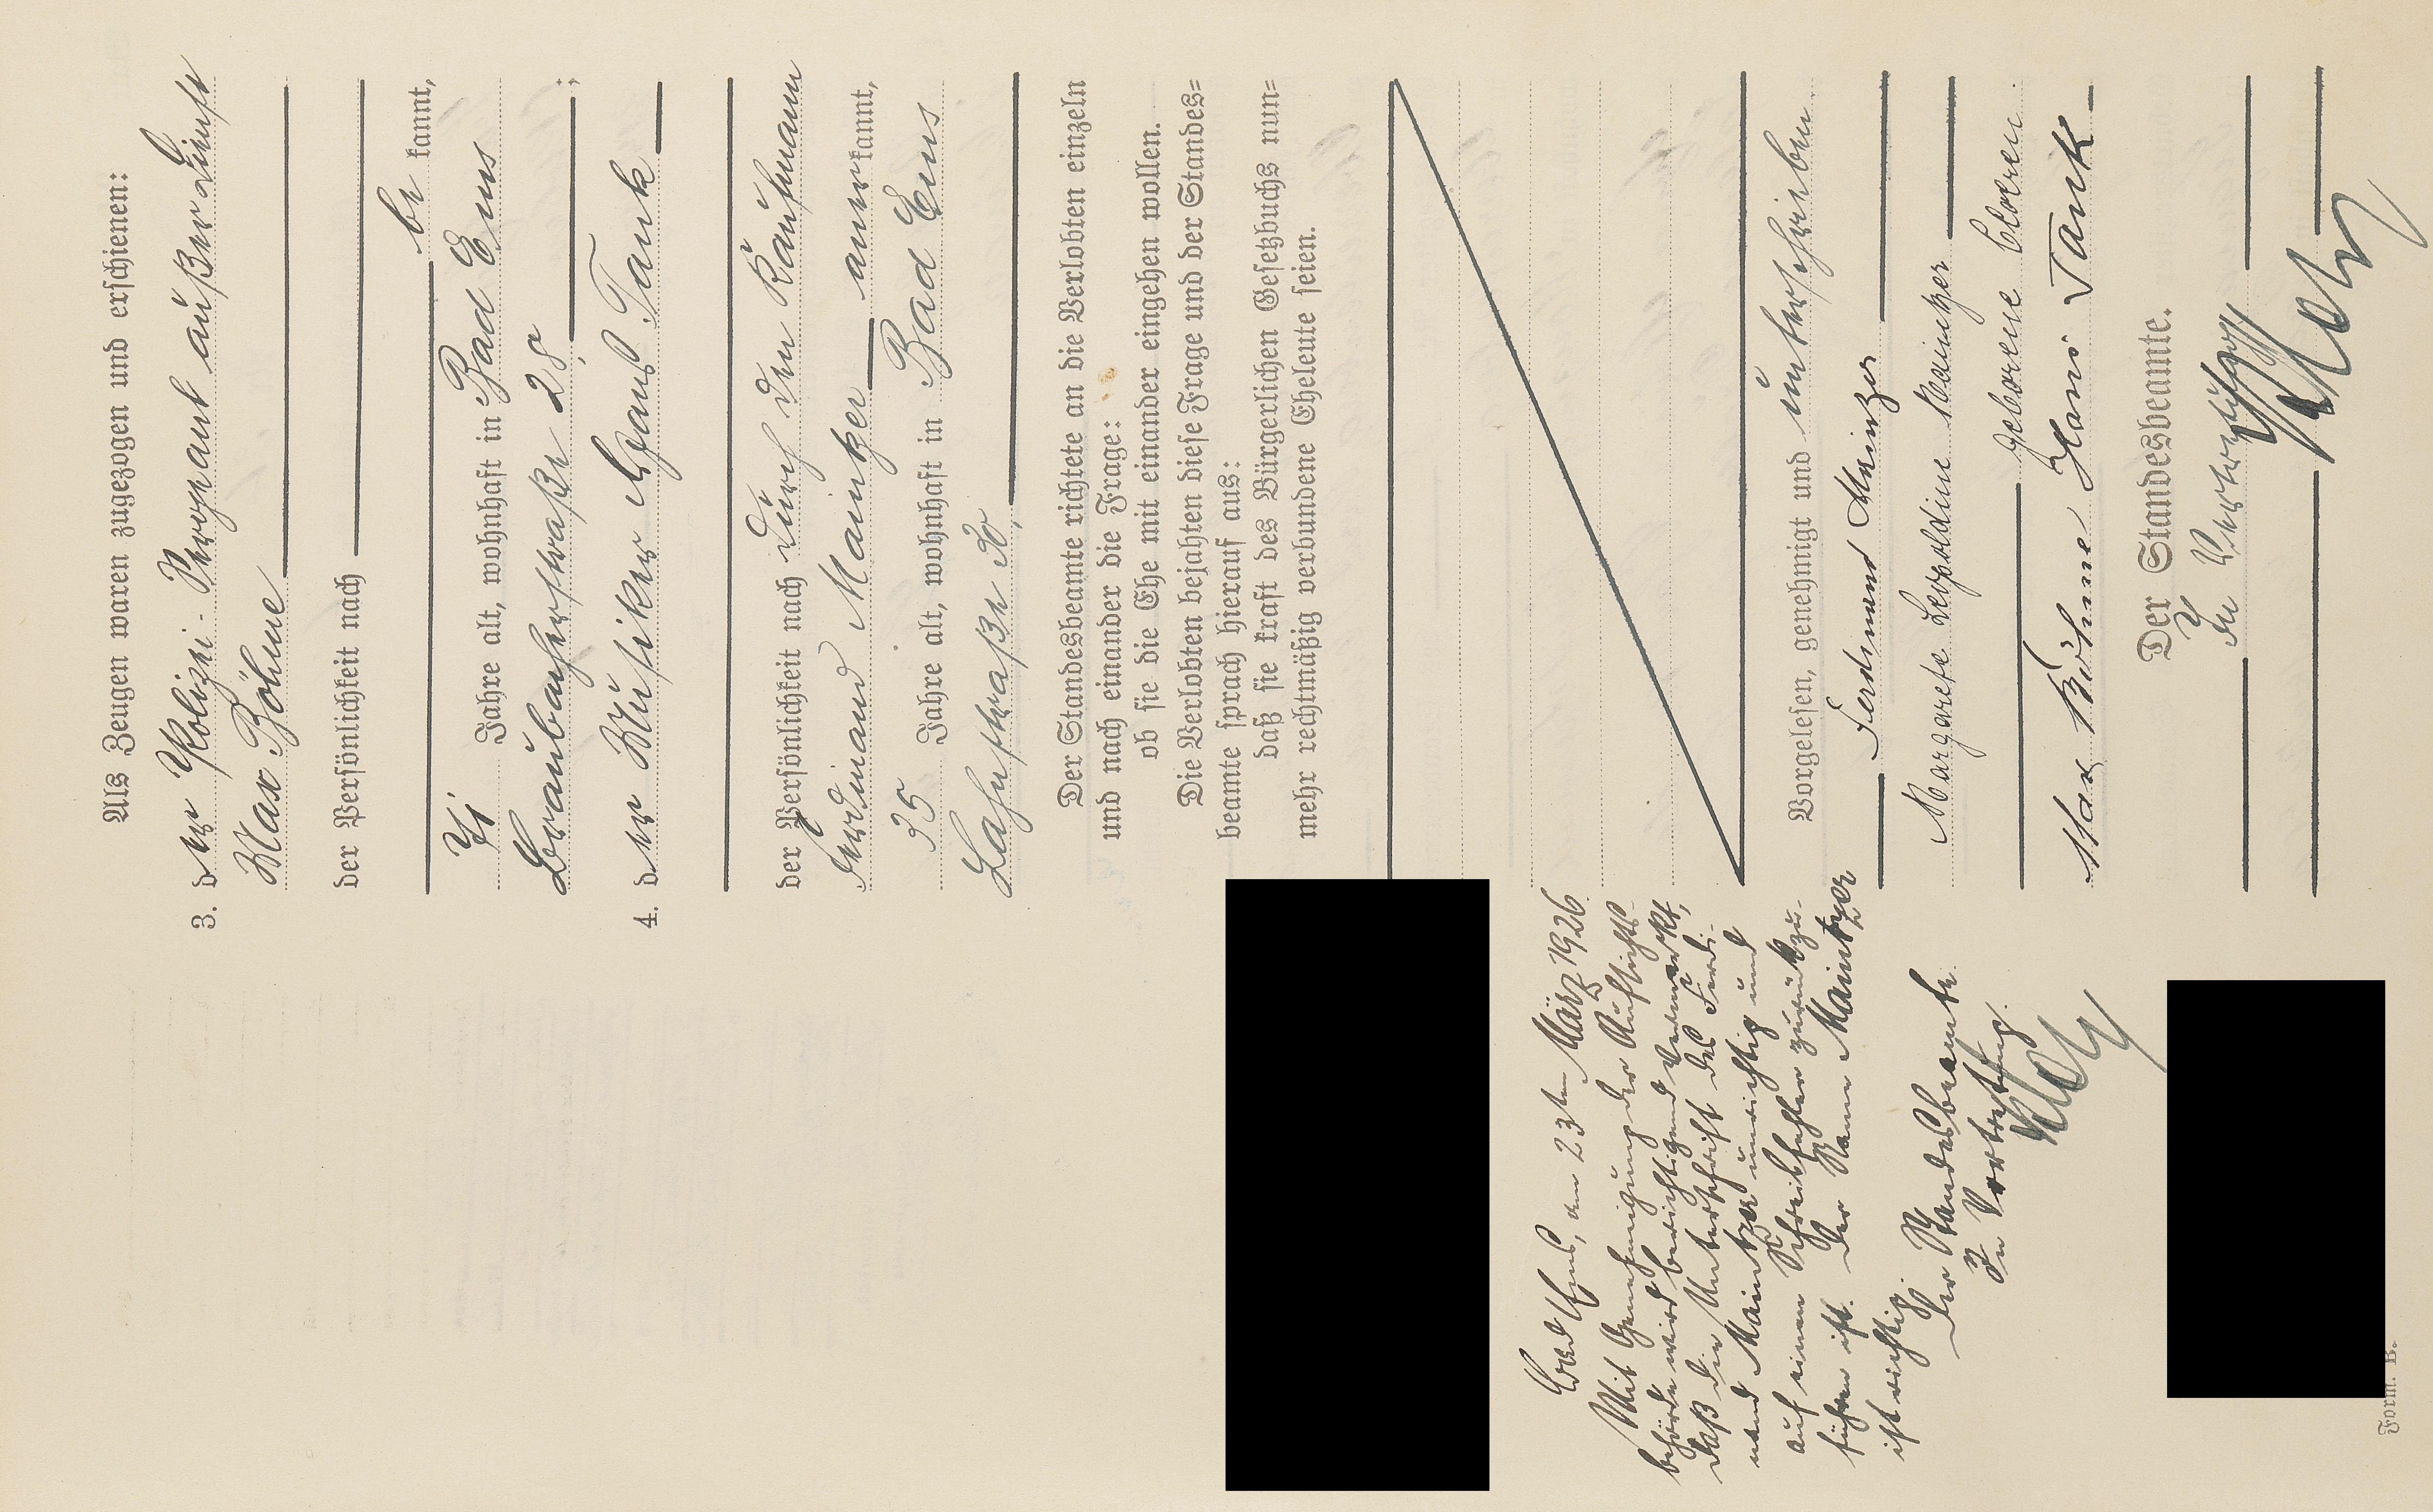 Als Zeugen waren zugezogen und erschienen:
3. der Polizei-Sergeant außer Dienst
Max Böhme
der Persönlichkeit nach
be kannt,
Jahre alt, wohnhaft in Bad Ems
Braubacherstraße 28,;
4. der Musiker Hans Tank
der Persönlichkeit nach durch den Kaufmann
Ferdinand Maintzer anerkannt,
35 Jahre alt, wohnhaft in Bad Ems
Lahnstraße
Der Standesbeamte richtete an die Verlobten einzeln
und nach einander die Frage:
ob sie die Ehe mit einander eingehen wollen.
Die Verlobten bejahten diese Frage und der Standes=
beamte sprach hierauf aus:
daß sie kraft des Bürgerlichen Gesetzbuchs nun=
mehr rechtmäßig verbundene Eheleute seien.
Vorgelesen, genehmigt und unterschrieben
Ferdinand Mainzer
Margarete Leopoldine Maintzer
geborene Cloeren.
Max Böhme Hans Tank
Der Standesbeamte.
In Vertretung
Bad Ems, am 23ten März 1926.
Mit Genehmigung der Aufsichts-
behörde wird berichtigend vermerkt,
daß die Unterschrift des Ferdi-
nand Maintzer unrichtig und
auf einen Schreibfehler zurückzu-
führen ist. Der Name Maintzer
ist richtig.
Der Standesbeamte
In Vertretung.
Form. B.